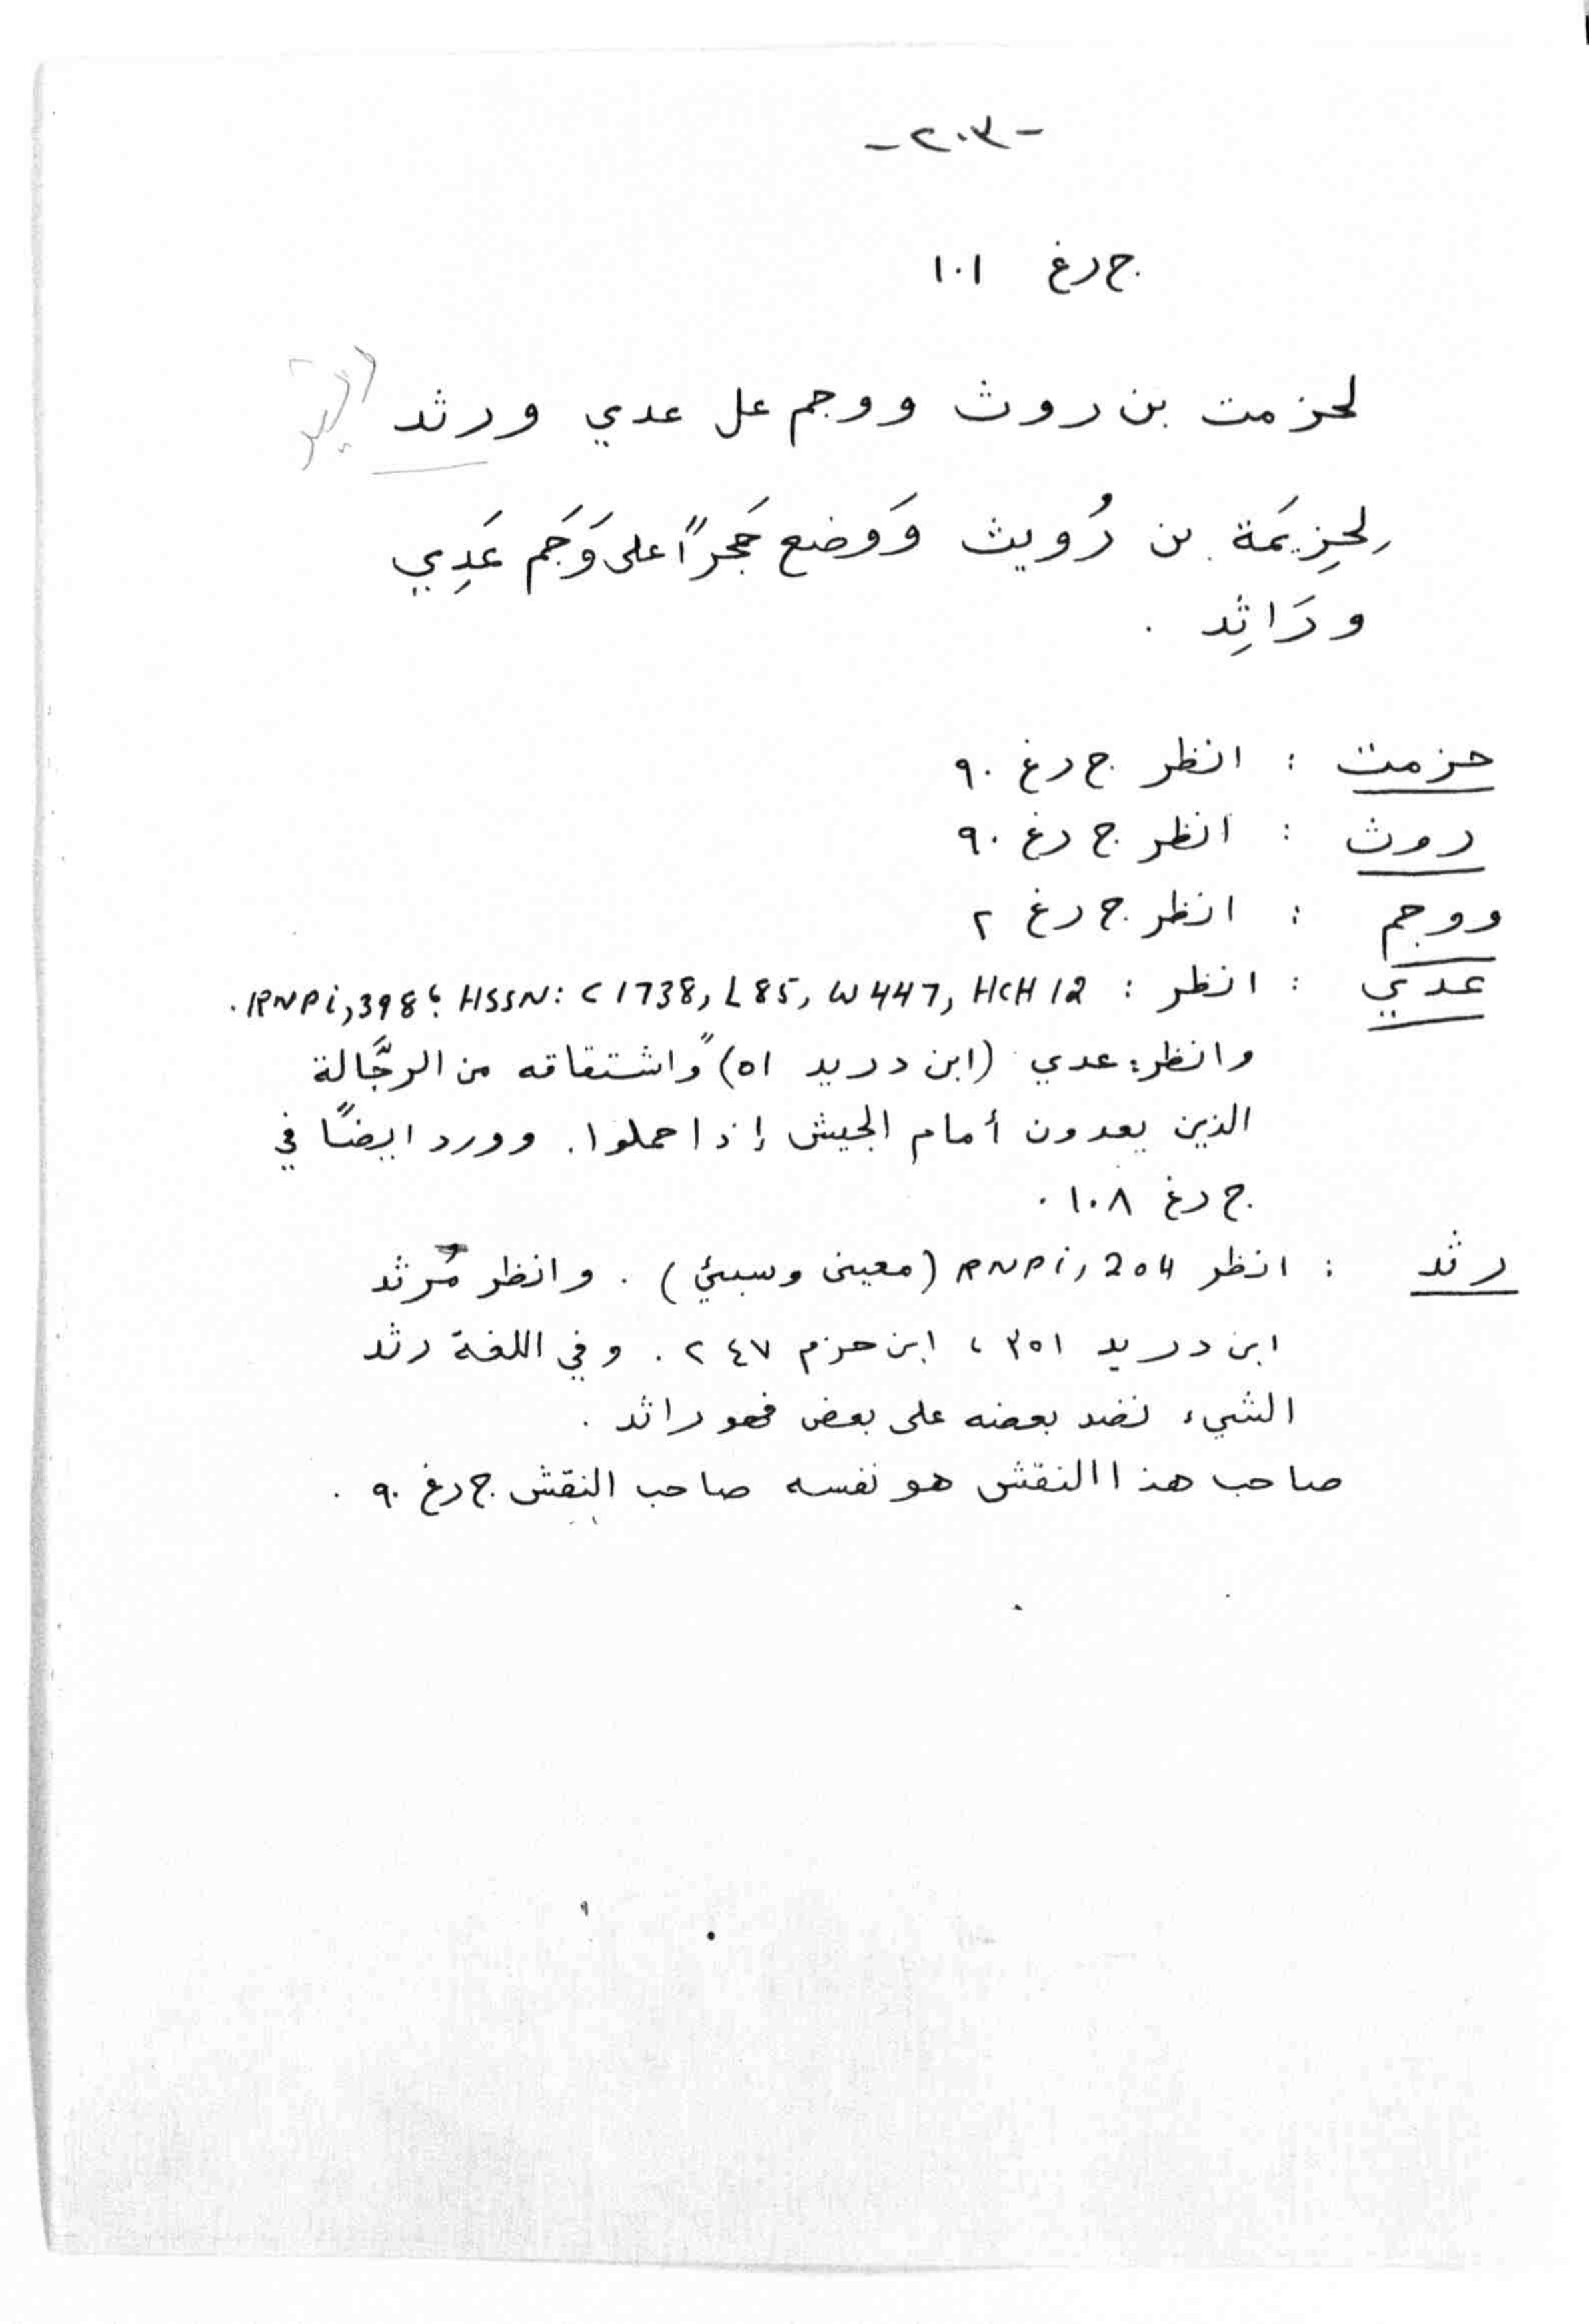 -٢٠٣-
ج رغ ١٠١
لحزمت بن روث ووجم عل عدي ورثد
لِحِزيمَة بن رُويث وَوضع حَجراً على وَجَم عَدِي
ورَاثِد .
حزمت : انظر ج رغ ٩٠
روث : انظر ج رغ ٩٠
ووجم : انظر ج رغ ٢
عدي : انظر : RNPi, 398؛ HSSN: C 1738, L 85, W 447, HCH 12 .
وانظر: عدي (ابن دريد ٥١) "واشتقاقه من الرجَّالة
الذين يعدون أمام الجيش إذا حملوا". وورد ايضاً في
ج رغ ١٠٨ .
رثد : انظر RNPi, 204 (معيني وسبئي) . وانظر مُرثد
ابن دريد ٣٥١ ، ابن حزم ٢٤٧ . وفي اللغة رثد
الشيء نضد بعضه على بعض فهو راثد .
صاحب هذا النقش هو نفسه صاحب النقش ج رغ ٩٠ .